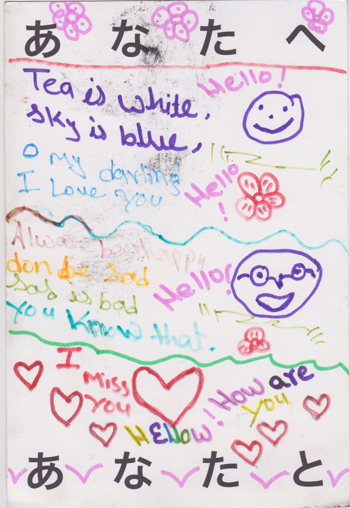 あなたへ
Hello!
Tea is white,
sky is blue,
O my darling
I Love you
Hello
!
Always be happy
don be sad
sad is bad
you know that.
Hello!
I
miss
you
How are
you
HEllow!
あなたと